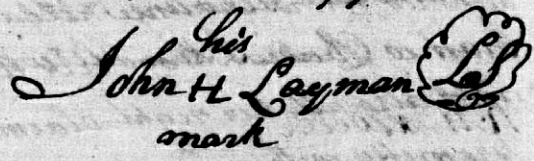 his
John H Layman LS
mark